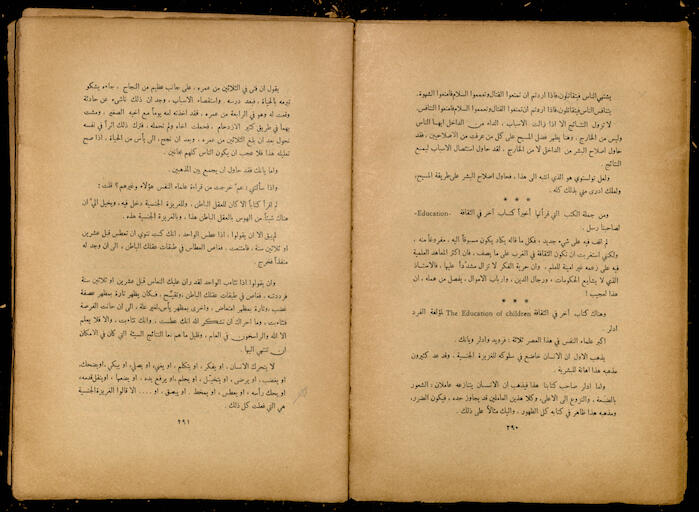 يشتهي الناس فيتقاتلون فاذا اردتم ان تمنعوا القتال وتعمموا السلام فامنعوا الشهوة.
يتنافس الناس فيتقاتلون فاذا اردتم ان تمنعوا القتال وتعمموا السلام فامنعوا التنافس.
لا تزول النتائج الا اذا زالت الاسباب ، الداء من الداخل ايها الناس
وليس من الخارج ، وهنا يظهر فضل المسيح على كل من عرفت من الاصلاحيين ، فقد
حاول اصلاح البشر من الداخل لا من الخارج ، لقد حاول استئصال الاسباب ليمنع
النتائج .
ولعل تولستوي هو الذي انتبه الى هذا ، فحاول اصلاح البشر على طريقة المسيح،
ولعلك ادرى مني بذلك كله .
* * *
ومن جملة الكتب التي قرأتها أخيراً كتاب آخر في الثقافة -Education-
لصاحبنا رسل .
لم اقف فيه على شيء جديد ، فكل ما قاله يكاد يكون مسبوقاً اليه ، مفروغاً منه ،
ولكني استغربت ان تكون الثقافة في الغرب على ما يصف ، فان اكثر المعاهد العلمية
فيه على زعمه غير امينة للعلم ، وان حرية الفكر لا تزال مشدداً عليها ، فالاستاذ
الذي لا يشايع الحكومات ، ورجال الدين ، وارباب الاموال ، يفصل من عمله ، ان
هذا لعجيب !
* * *
وهناك كتاب آخر في الثقافة The Education of children لمؤلفه الفرد
ادلر .
اكبر علماء النفس في هذا العصر ثلاثة : فرويد وادلر ويانك .
يذهب الاول ان الانسان خاضع في سلوكه للغريزة الجنسية . وقد عد كثيرون
مذهبه هذا اهانة للبشرية .
واما ادلر صاحب كتابنا هذا فيذهب ان الانسان يتنازعه عاملان ، الشعور
بالضعة ، والنزوع الى الاعلى، وكلا هذين العاملين قد يجاوز حده ، فيكون الضرر،
ومذهبه هذا ظاهر في كتابه كل الظهور . واليك مثالاً على ذلك .
٢٩٠
يقول ان فتى في الثلاثين من عمره ، على جانب عظيم من النجاح . جاءه يشكو
تبرمه بالحياة ، فبعد درسه . واستقصاء الاسباب ، وجد ان ذلك ناشىء عن حادثة
وقعت له وهو في الرابعة من عمره . فقد اخذته امه يوماً مع اخيه الصغير . ومشت
بهما في طريق كثير الازدحام . فحملت اخاه ولم تحمله . فترك ذلك اثراً في نفسه
تحول بعد ان بلغ الثلاثين من عمره ، وبعد ان نجح، الى يأس من الحياة . اذا صح
تعليله هذا فلا عجب ان يكون الناس كلهم مجانين .
واما يانك فقد حاول ان يجمع بين المذهبين .
واذا سألتني : عمّ خرجت من قراءة علماء النفس هؤلاء وغيرهم ؟ قلت :
لم اقرأ كتاباً الا كان للعقل الباطن ، وللغريزة الجنسية دخل فيه، ويخيل اليّ ان
هناك شيئاً من الهوس بالعقل الباطن هذا ، وبالغريزة الجنسية هذه .
لم يبق الا ان يقولوا ، اذا عطس الواحد ، انك كنت تنوي ان تعطس قبل عشرين
او ثلاثين سنة . فامتنعت . فغاص العطاس في طبقات عقلك الباطن ، الى ان وجد له
منفذاً فخرج .
وان يقولوا اذا تثاءب الواحد لقد ران عليك النعاس قبل عشرين او ثلاثين سنة
فرددته ، فغاص في طبقات عقلك الباطن، وتقيّح، فكان يظهر تارة بمظهر غصة
غضب، وتارة بمظهر امتعاض ، واخرى بمظهر يأس، لغير علة ، الى ان حانت الفرصة
فتثاءبت . وما احراك ان تشكر الله انك عطست ، وانك تثاءبت ، والا فلا يعلم
الا الله والراسخون في العلم ، وقليل ما هم ،ما النتائج السيئة التي كان في الامكان
ان تنتهي اليها .
لا يتحرك الانسان . او يفكر ، او يتكلم ، او يغني، او يصلي، او يبكي ،او يضحك،
او يغضب ، او يرضى ، او يتخيل ، او يحلم ،او يرفع يده ، او يضعها ، او ينقل قدمه،
او يحك رأسه ، او يعطس ، او يمخط . او يبصق ، او .... الا قالوا الغريزة الجنسية
هي التي فعلت كل ذلك .
٢٩١